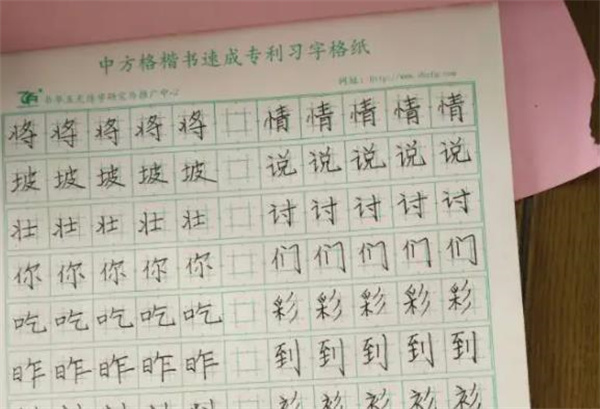 中方格楷书速成专利习字格纸
将 将 将 将 将 情 情 情 情 情
坡 坡 坡 坡 坡 说 说 说 说 说
壮 壮 壮 壮 壮 讨 讨 讨 讨 讨
你 你 你 你 你 们 们 们 们 们
吃 吃 吃 吃 吃 彩 彩 彩 彩 彩
昨 昨 昨 昨 昨 到 到 到 到 到